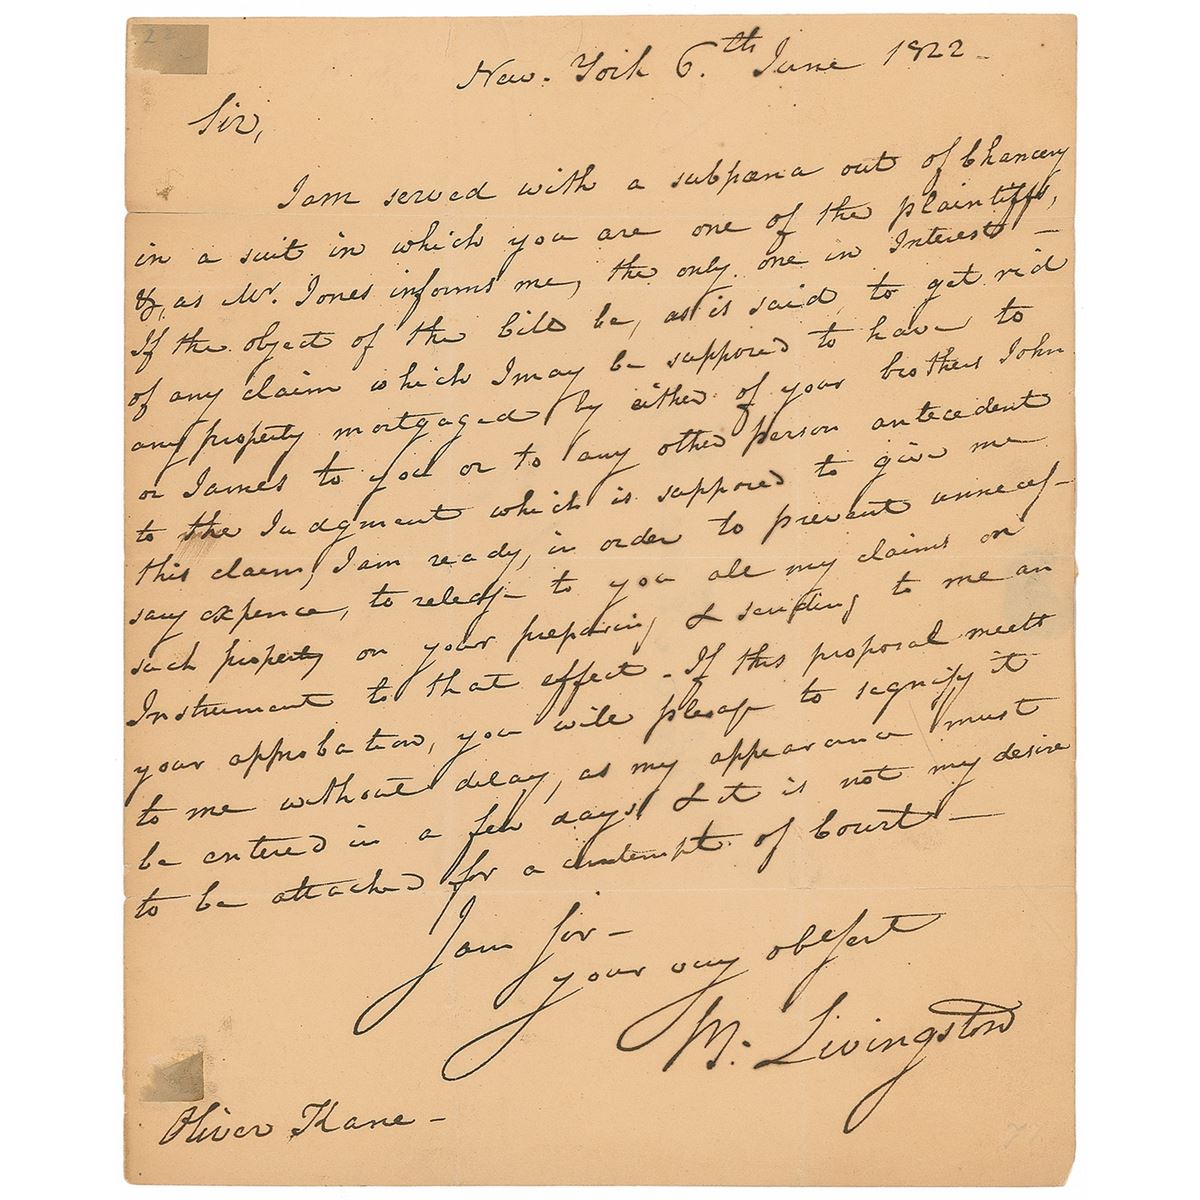 22
New-York 6.th June 1822-
Sir,
I am served with a subpœna out of Chancery
in a suit in which you are one of the plaintiffs,
&, as Mr. Jones informs me, the only one in Interest -
If the object of the bill be, as is said, to get rid
of any claim which I may be supposed to have to
any property mortgaged by either of your brothers John
or James to you or to any other person antecedent
to the Judgment which is supposed to give me
this claim, I am ready, in order to prevent unneces-
sary expence, to release to you all my claims on
such property on your preparing & sending to me an
Instrument to that effect - If this proposal meets
your approbation, you will please to signify it
to me without delay, as my appearance must
be entered in a few days, & it is not my desire
to be attached for a contempt of Court -
I am Sir -
your very obt Sert
M. Livingston
Oliver Kane -